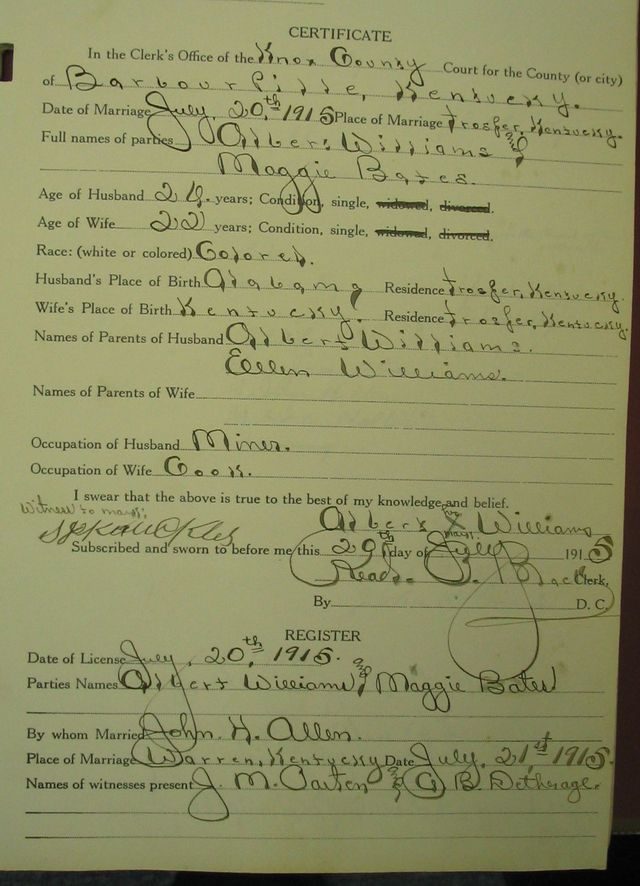 CERTIFICATE
In the Clerk's Office of the Knox County Court for the County (or city)
of Barbourville, Kentucky.
Date of Marriage July, 20,th 1915 Place of Marriage Trosper, Kentucky.
Full names of parties Albert Williams and
Maggie Bates.
Age of Husband 24. years; Condition, single, widowed, divorced.
Age of Wife 22 years; Condition, single, widowed, divorced.
Race: (white or colored) Colored.
Husband's Place of Birth Alabama Residence Trosper, Kentucky.
Wife's Place of Birth Kentucky. Residence Trosper, Kentucky.
Names of Parents of Husband Albert Williams.
Ellen Williams.
Names of Parents of Wife
Occupation of Husband Miner.
Occupation of Wife Cook.
I swear that the above is true to the best of my knowledge and belief.
Witness to mark;
Albert his X mark Williams
Subscribed and sworn to before me this 20th day of July 1915
Read. P. Black Clerk,
By D. C.
REGISTER
Date of License July, 20,th 1915.
Parties Names Albert Williams and Maggie Bates
By whom Married John H. Allen.
Place of Marriage Warren, Kentucky Date July, 21,st 1915.
Names of witnesses present J. M. and G. B. Detherage.